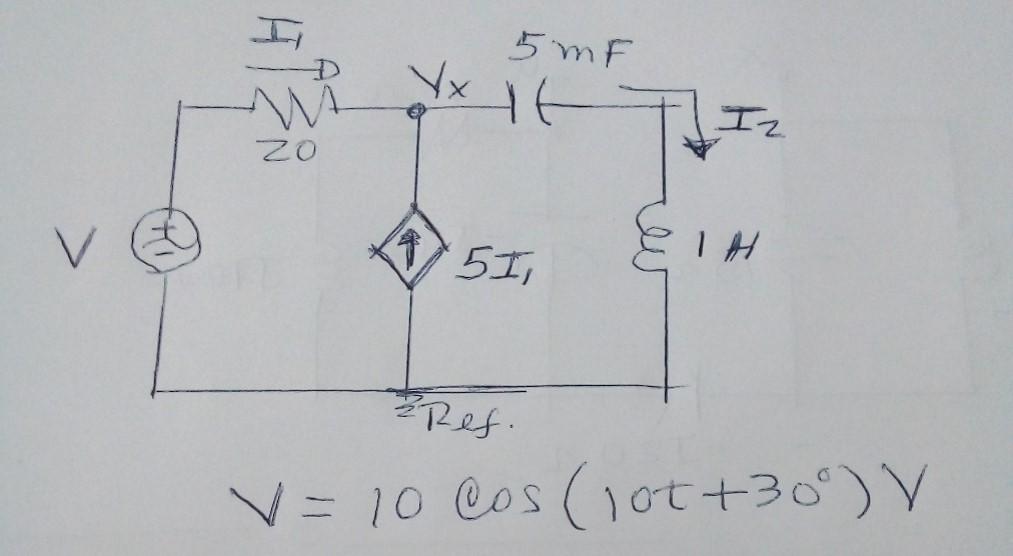 I1
5mF
Vx
I2
20
V
5I1
1H
Ref.
V = 10 Cos(10t+30°) V